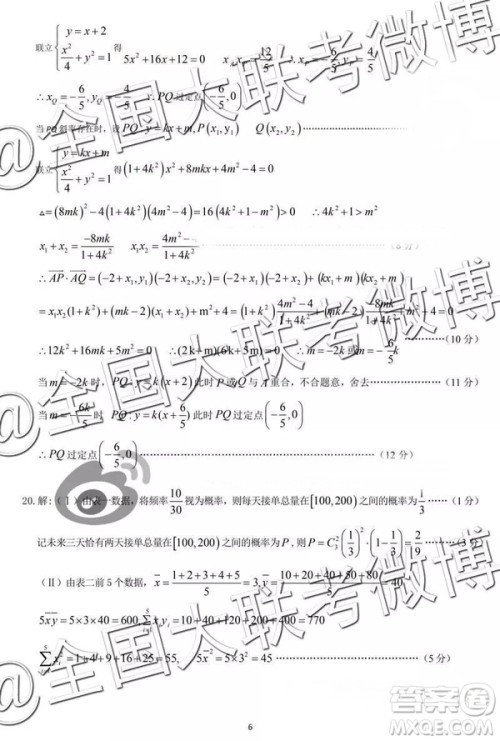 联立{y=x+2, x²/4+y²=1 得 5x²+16x+12=0
∴x_Q=-6/5, y_Q=-4/5 ∴PQ过定点(-6/5,0)
当PQ斜率存在时，设PQ:y=kx+m,P(x₁,y₁) Q(x₂,y₂)
联立{y=kx+m, x²/4+y²=1 得(1+4k²)x²+8mkx+4m²-4=0
△=(8mk)²-4(1+4k²)(4m²-4)=16(4k²+1-m²)>0 ∴4k²+1>m²
x₁+x₂=-8mk/(1+4k²)
∴AP·AQ=(-2+x₁,y₁)(-2+x₂,y₂)=(-2+x₁)(-2+x₂)+(kx₁+m)(kx₂+m)
=x₁x₂(1+k²)+(mk-2)(x₁+x₂)+m²+4=
∴12k²+16mk+5m²=0 ∴(2k+m)(6k+5m)=0 ∴m=-2k 或 m=-6k/5 (10 分)
当m=-2k时，PQ:y=k(x+2)此时P或Q与A重合，不合题意，舍去 (11 分)
当m=-6k/5时 PQ:y=k(x+6/5)此时PQ过定点(-6/5,0)
∴PQ过定点(-6/5,0) (12 分)
20.解:（Ⅰ）由表一数据，将频率10/30视为概率，则每天接单总量在[100,200)之间的概率为1/3 (1 分)
记未来三天恰有两天接单总量在[100,200)之间的概率为P，则P=C₃²(1/3)²(1-1/3)=2/9 (3 分)
（Ⅱ）由表二前5个数据，x̄=(1+2+3+4+5)/5=3, ȳ=(10+20+40+50+80)/5=40
5x̄ȳ=5×3×40=600, Σx_iy_i=10+40+120+200+400=770
Σx_i²=1+4+9+16+25=55, 5x̄²=5×3²=45 (5 分)
6
@全国大联考微博
@全国大联考微博